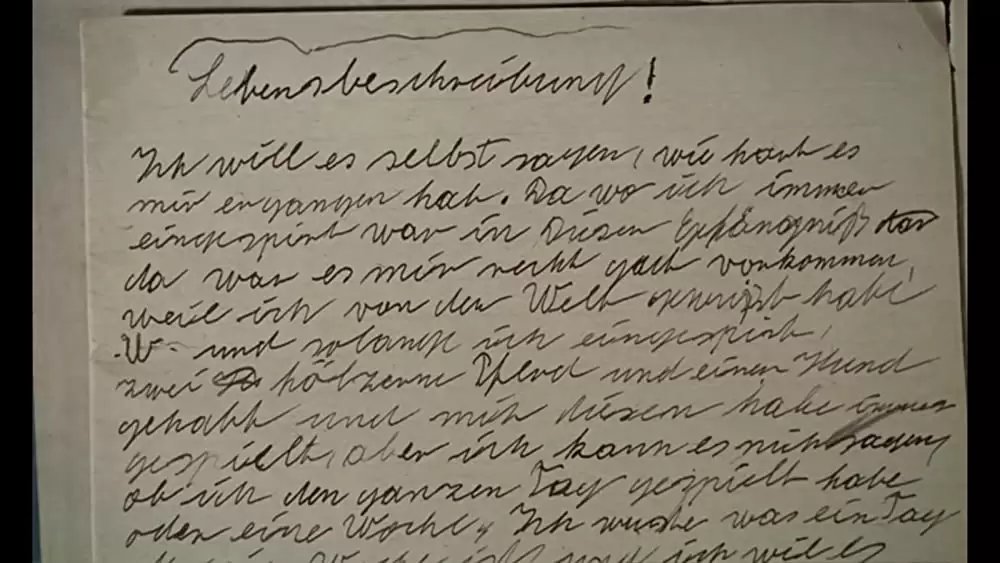 Lebensbeschreibung!
Ich will es selbst sagen, wie hart es
mir ergangen hat. Da wo ich immer
eingespirt war in diesen Gefängniß
da war es mir recht gut vorkommen,
weil ich von der Welt habe
und solange ich eingespirt,
zwei hölzerne Pferd und einen Hund
gehabt und mit diesen habe immer
gespielt, aber ich kann es nicht sagen,
ob ich den ganzen Tag gespielt habe
oder eine Woche, Ich wuste was ein Tag
und ich will es